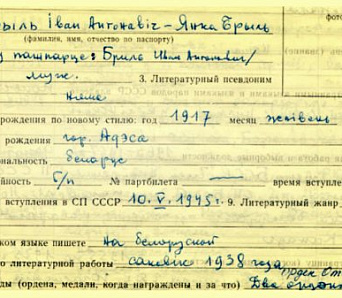 рыль Іван Антонавіч - Янка Брыль
(фамилия, имя, отчество по паспорту)
фото
у пашпарце: Брыль Иван Антонович/
3. Литературный псевдоним
няма
рождения по новому стилю: год 1917 месяц жнівень
рождения гор. Адэса
ональность беларус
ийность б/п № партбилета — время вступле
вступления в СП СССР 10.V.1945 г. 9. Литературный жанр
ком языке пишете на белорусской
о литературной работы жнівень 1938 года
ды (ордена, медали, когда награждены и за что) Два ордэны